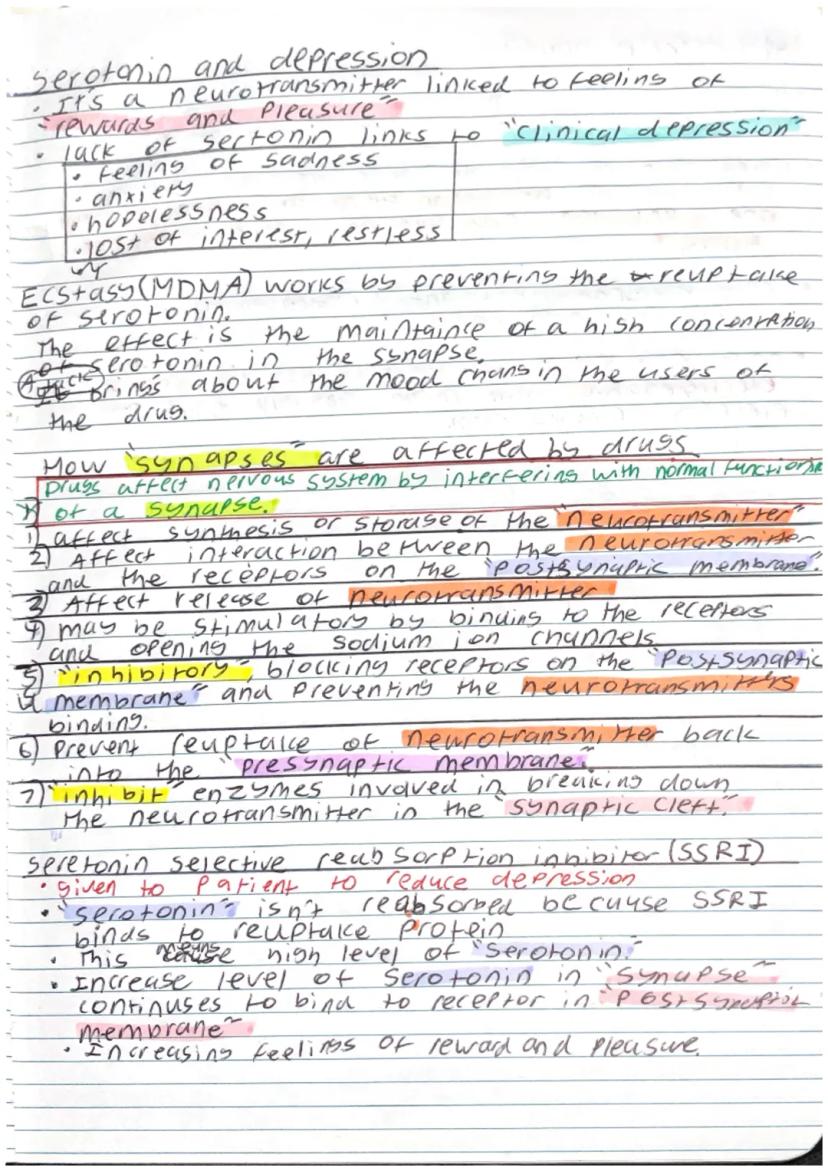 Serotonin and depression
• It's a neurotransmitter linked to feeling of
"rewards and pleasure"
• lack of sertonin links to "clinical depression"
• feeling of sadness
• anxiery
• hopelessness
• lost of interest, restless
Ecstasy (MDMA) works by preventing the reuptake
of serotonin.
The effect is the maintaince of a high concentration
of serotonin in the synapse.
brings about the mood chans in the users of
the drug.
How "synapses" are affected by drugs
Drugs affect nervous system by interfering with normal functions
of a synapse.
1) affect synthesis or storase of the "neurotransmitter"
2) Affect interaction between the neurotransmitter
and the receptors on the "postsynaptic membrane".
3) Affect release of neurotransmitter
4) may be stimulatory by binding to the receptors
and opening the sodium ion channels
5) "inhibitory", blocking receptors on the "postsynaptic
membrane" and preventing the neurotransmitters
binding.
6) Prevent reuptake of neurotransmitter back
into the "presynaptic membrane".
7) "inhibit" enzymes involved in breaking down
the neurotransmitter in the "synaptic cleft."
Seretonin selective reabsorption inhibitor (SSRI)
• given to patient to reduce depression
• "serotonin" isn't reabsorbed because SSRI
binds to reuptake protein
• This means high level of "serotonin."
• Increase level of serotonin in "synapse"
continuses to bind to receptor in "postsynaptic
membrane"
• Increasing feelings of reward and pleasure.